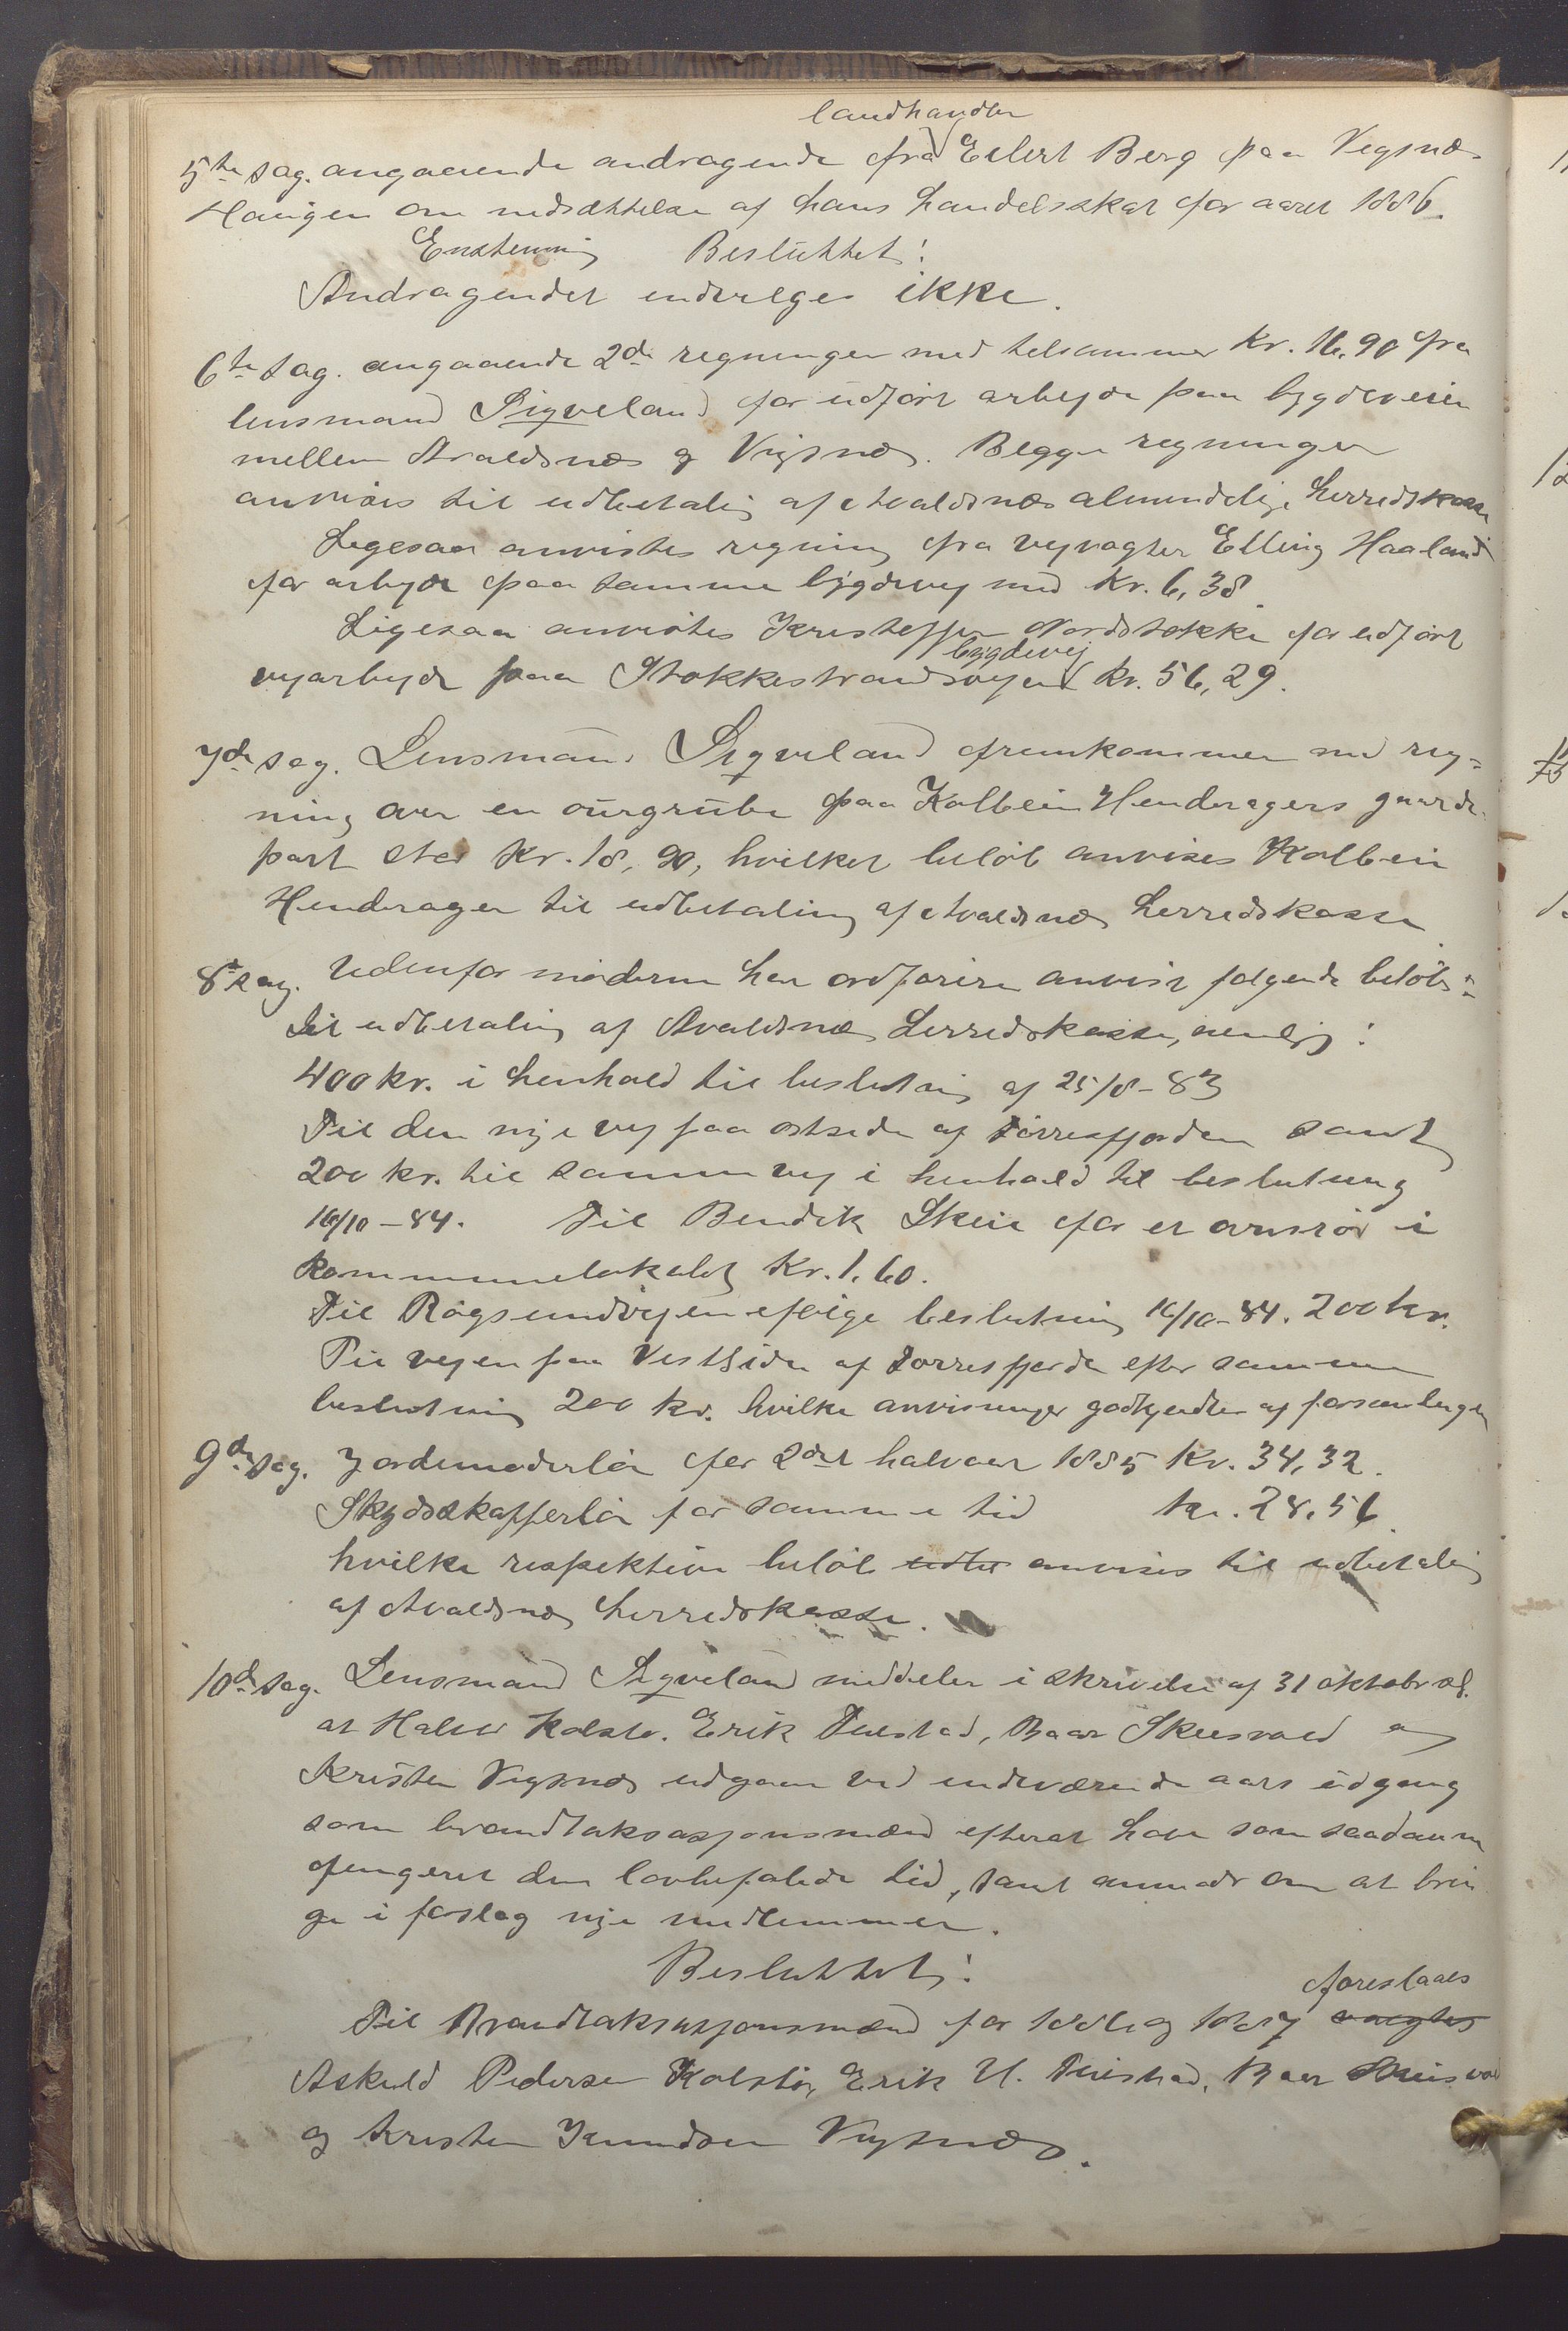 landhandler
5te sag. angaaende andragende fra Eilert Berg paa Vigsnæs
Haugen om nedsættelse af hans handelsskat for aaret 1886.
Enstemmig Besluttet:
Andragendet indvilges ikke.
6te sag. angaaende 2de regninger med tilsammen Kr. 16,90 fra
lensmand Sigveland for udført arbejde paa bygdeveien
mellem Avaldsnæs og Vigsnæs. Begge regninger
anvises til udbetaling af Avaldsnæs almindelige herredskasse
Ligesaa anvistes regning fra vejvogter Elling Haaland
for arbejde paa samme bygdevej med Kr. 6,38.
Ligesaa anvistes Kristoffer Nordstokke for udført
bygdevej
vejarbejde paa Stokkestrandsvejen Kr. 56,29.
7de sag. Lensmand Sigveland fremkommer med reg-
ning over en aurgrube paa Kolbein Hinderagers gaards
part stor Kr. 18,90, hvilket beløb anvises Kolbein
Hinderager til udbetaling af Avaldsnæs herredskasse
8de sag. Udenfor møderne har ordføreren anvist følgende beløb
til udbetaling af Avaldsnæs herredskasse, nemlig:
400 kr. i henhold til beslutning af 25/8-83
Til den nye vej paa østside af Førresfjorden samt
200 kr. til samme vej i henhold til beslutning
16/10-84. Til Bendik Skeie for et ovnsrør i
kommunelokalet Kr. 1,60.
Til Røgsundvejen ifølge beslutning 16/10-84. 200 kr.
Til vejen paa Vestside af Førresfjorde efter samme
beslutning 200 kr. hvilke anvisninger godkjendtes af forsamlingen
9de sag. Jordemoderløn for 2det halvaar 1885 Kr. 34,32.
Skydsskafferløn for samme tid kr. 28,56.
hvilke respektive beløb udbe anvises til udbetaling
af Avaldsnæs herredskasse.
10de sag. Lensmand Sigveland meddeler i skrivelse af 31 oktobr sl.
at Halvor Kolstø, Erik Tuestad, Baar Skeisvold og
Kristen Vigsnæs udgaar ved indeværende aars udgang
som brandtaksasjonsmænd efterat have som saadanne
fungeret den lovbefalede tid, samt anmoder om at brin
ge i forslag nye medlemmer.
Besluttet:
foreslaaes
Til Brandtaksasjonsmænd for 1886 og 1887 valgtes
Askeld Pedersen Kolstø, Erik H. Tuestad, Baar Skeisvold
og Kristen Knudsen Vigsnæs.